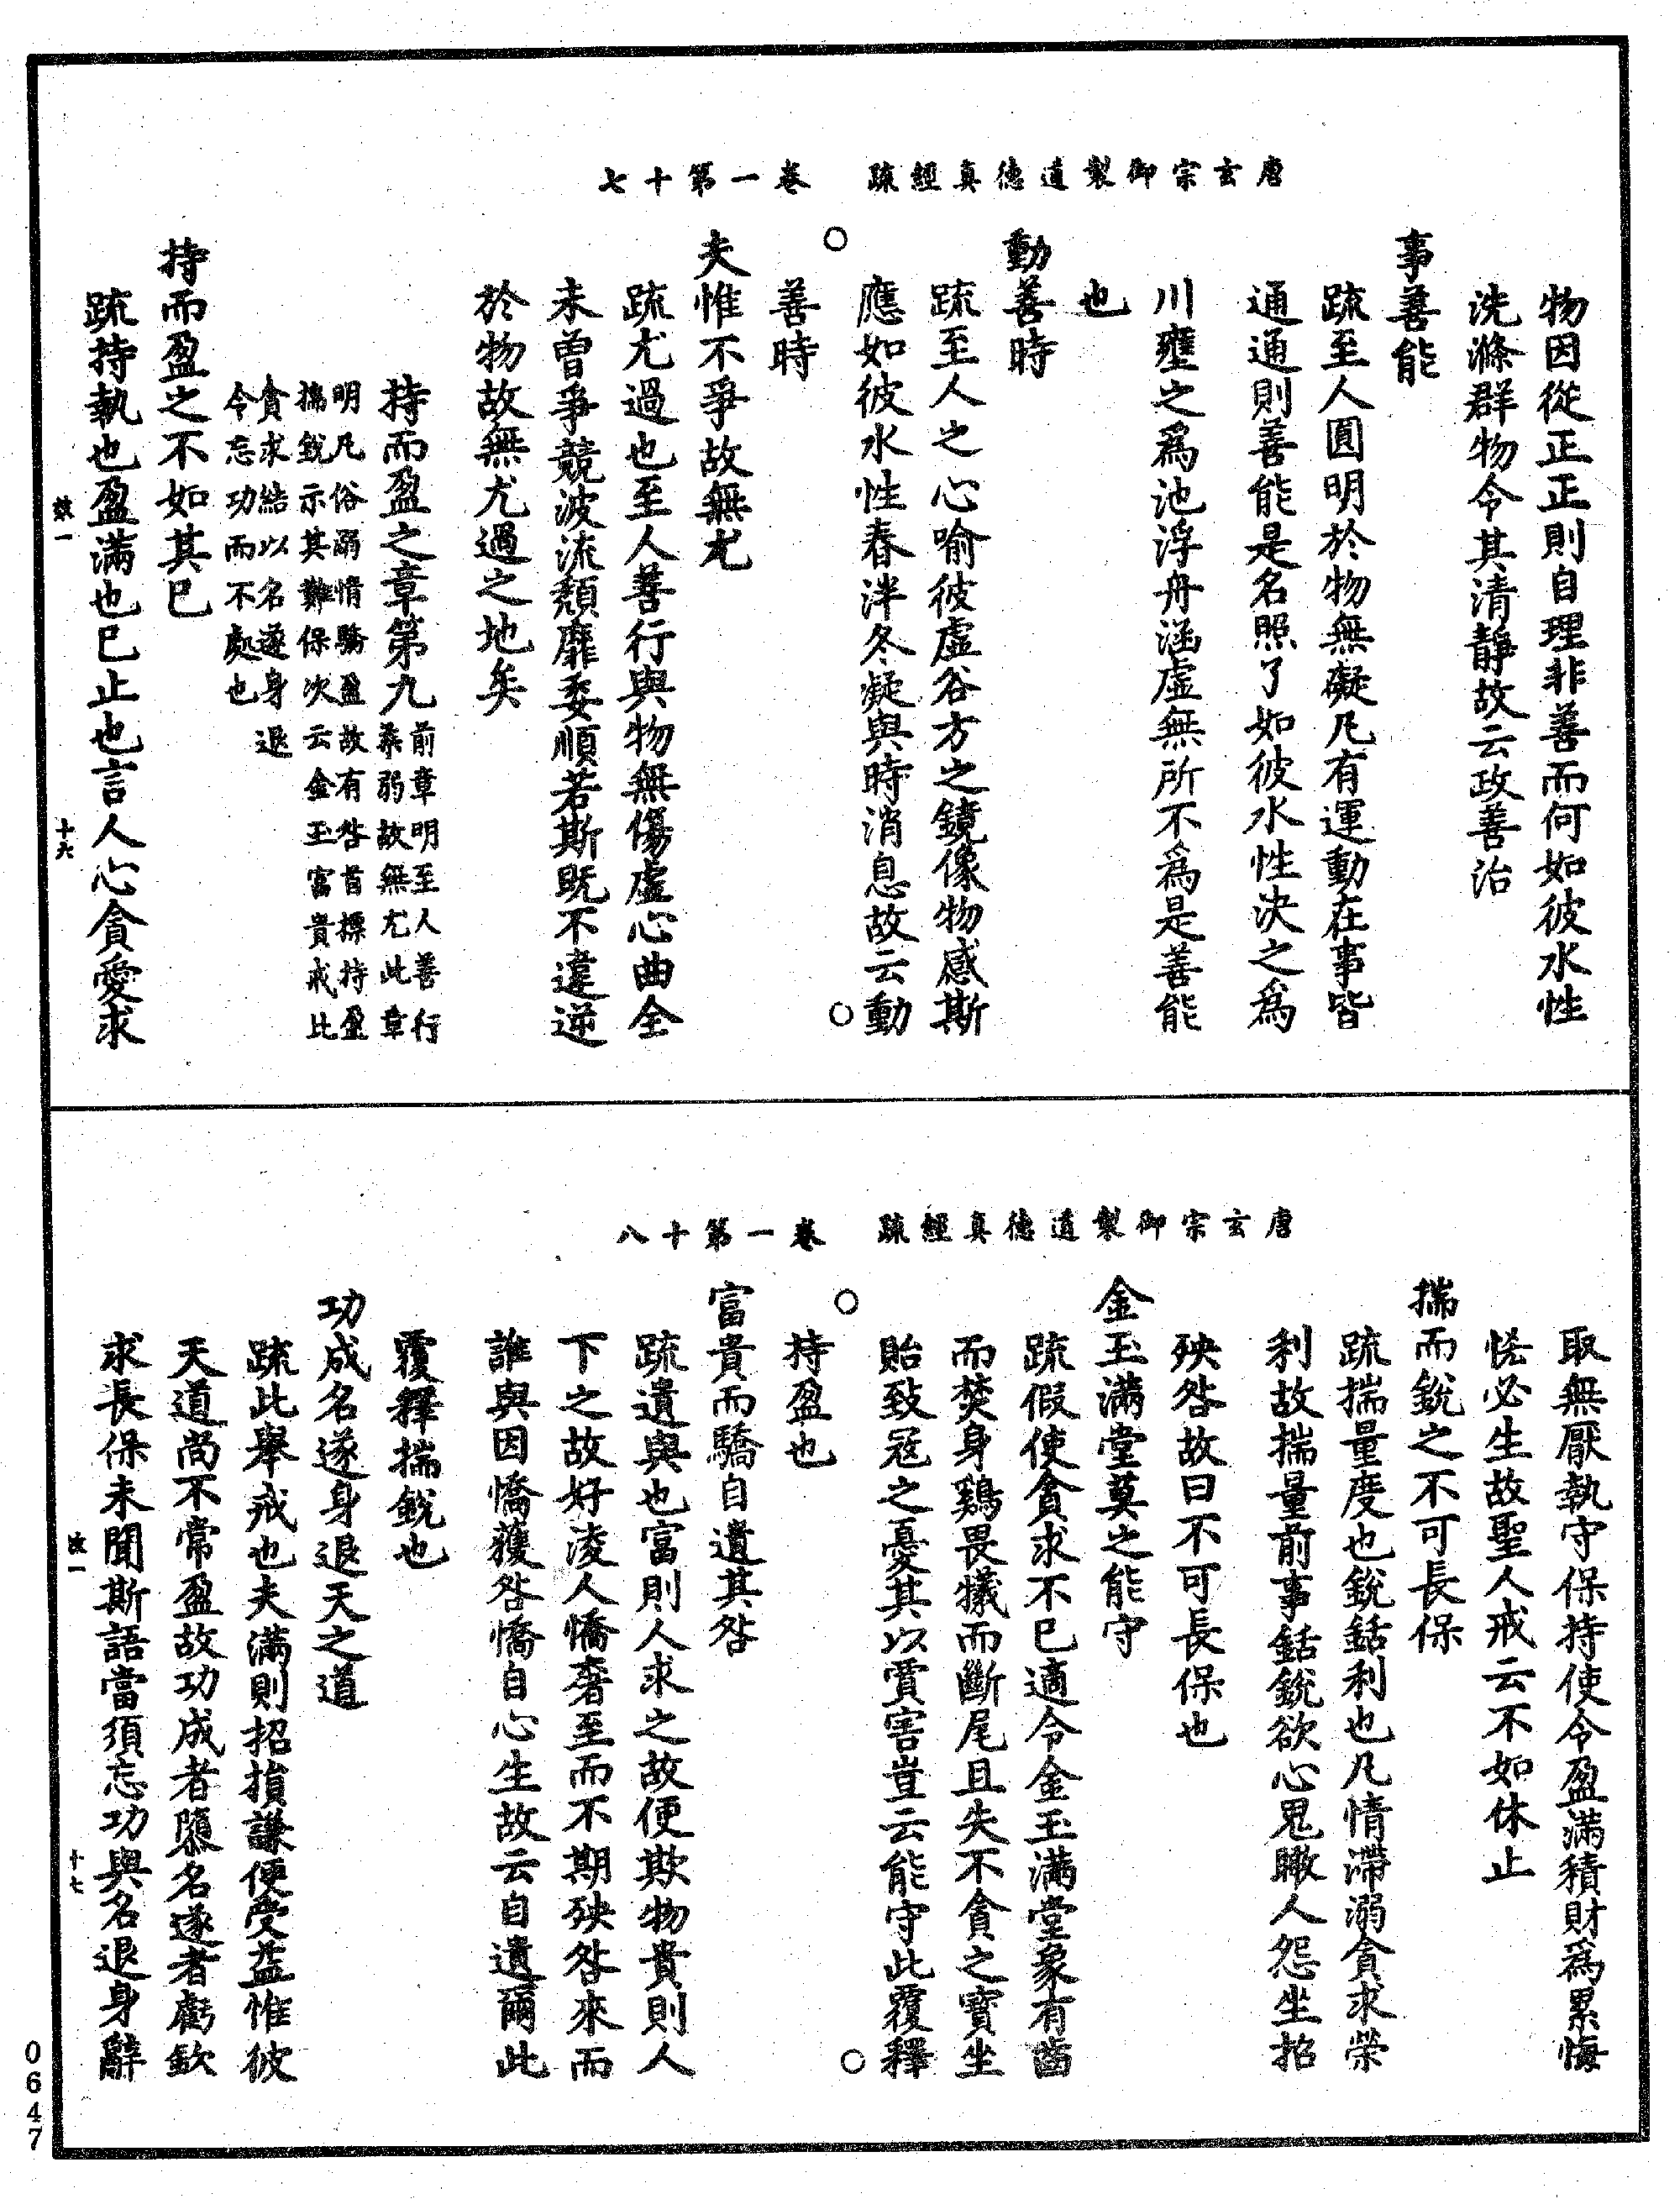 唐玄宗御製道德真經疏　卷一第十七
物因從正正則自理非善而何如彼水性
洗滌群物令其清靜故云政善治
事善能
疏至人圓明於物無礙凡有運動在事皆
通通則善能是名照了如彼水性決之為
川壅之為池浮舟涵虛無所不為是善能
也
動善時
疏至人之心喻彼虛谷方之鏡像物感斯
應如彼水性春泮冬凝與時消息故云動
善時
夫惟不爭故無尤
疏尤過也至人善行與物無傷虛心曲全
未曾爭競波流頹靡委順若斯既不違逆
於物故無尤過之地矣
持而盈之章第九前章明至人善行
柔弱故無尤此章
明凡俗溺情驕盈故有咎首標持盈
揣銳示其難保次云金玉富貴戒比
貪求結以名遂身退
令忘功而不處也
持而盈之不如其已
疏持執也盈滿也已止也言人心貪愛求
十六
唐玄宗御製道德真經疏　卷一第十八
取無厭執守保持使令盈滿積財為累悔
恡必生故聖人戒云不如休止
揣而銳之不可長保
疏揣量度也銳銛利也凡情滯溺貪求榮
利故揣量前事銛銳欲心鬼瞰人怨坐招
殃咎故曰不可長保也
金玉滿堂莫之能守
疏假使貪求不已適令金玉滿堂象有齒
而焚身鷄畏犧而斷尾且失不貪之寶坐
貽致寇之憂其以賈害豈云能守此覆釋
持盈也
富貴而驕自遺其咎
疏遺與也富則人求之故便欺物貴則人
下之故好淩人憍奢至而不期殃咎來而
誰與因憍獲咎憍自心生故云自遺爾此
覆釋揣銳也
功成名遂身退天之道
疏此舉戒也夫滿則招損謙便受益惟彼
天道尚不常盈故功成者隳名遂者虧欲
求長保未聞斯語當須忘功與名退身辭
十七
0647